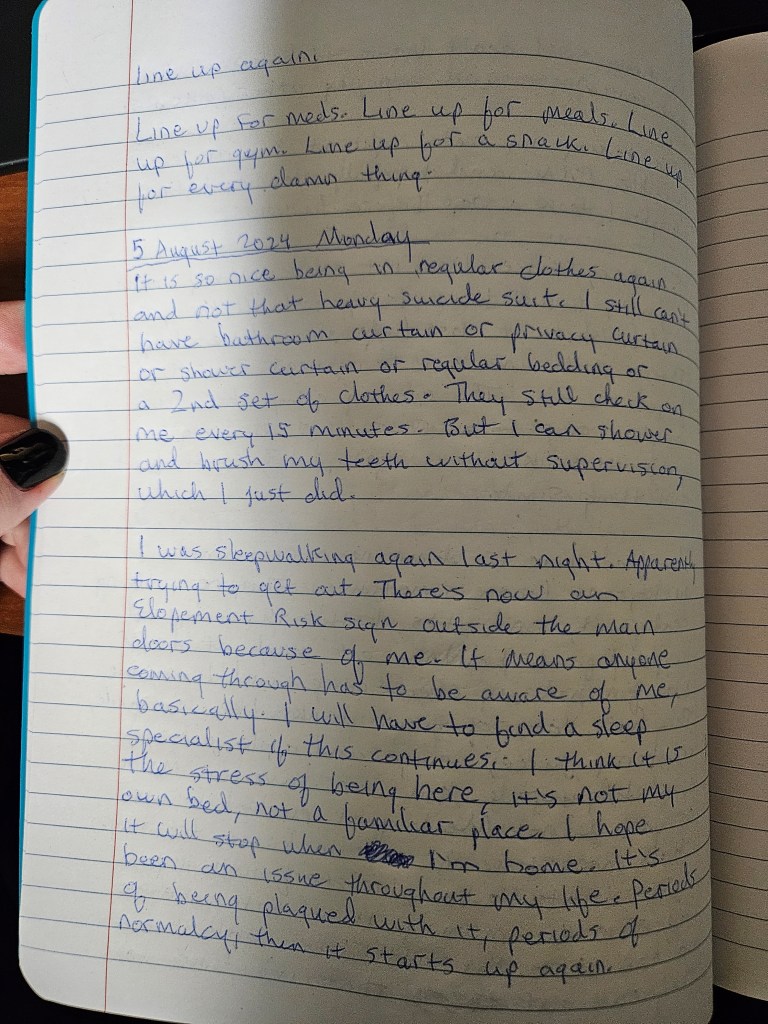 Line up again.
Line up for meds. Line up for meals. Line
up for gym. Line up for a snack. Line up
for every damn thing.
5 August 2024 Monday
It is so nice being in regular clothes again
and not that heavy suicide suit. I still can't
have bathroom curtain or privacy curtain
or shower curtain or regular bedding or
a 2nd set of clothes. They still check on
me every 15 minutes. But I can shower
and brush my teeth without supervision,
which I just did.
I was sleepwalking again last night. Apparently
trying to get out. There's now an
Elopement Risk sign outside the main
doors because of me. It means anyone
coming through has to be aware of me,
basically. I will have to find a sleep
specialist if this continues. I think it is
the stress of being here, it's not my
own bed, not a familiar place. I hope
it will stop when I'm home. It's
been an issue throughout my life. Periods
of being plagued with it, periods of
normalcy, then it starts up again.